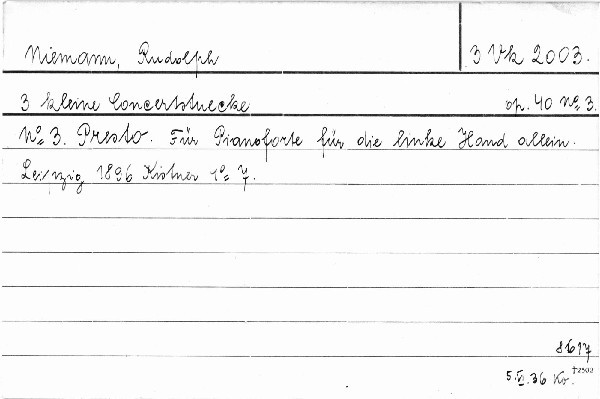 Niemann, Rudolph 3 Vk 2003.
3 kleine Concertstuecke op. 40 No 3.
No 3. Presto. Für Pianoforte für die linke Hand allein.
Leipzig 1896 Kistner 7.
8617
5.VI.36 Kr. †2502